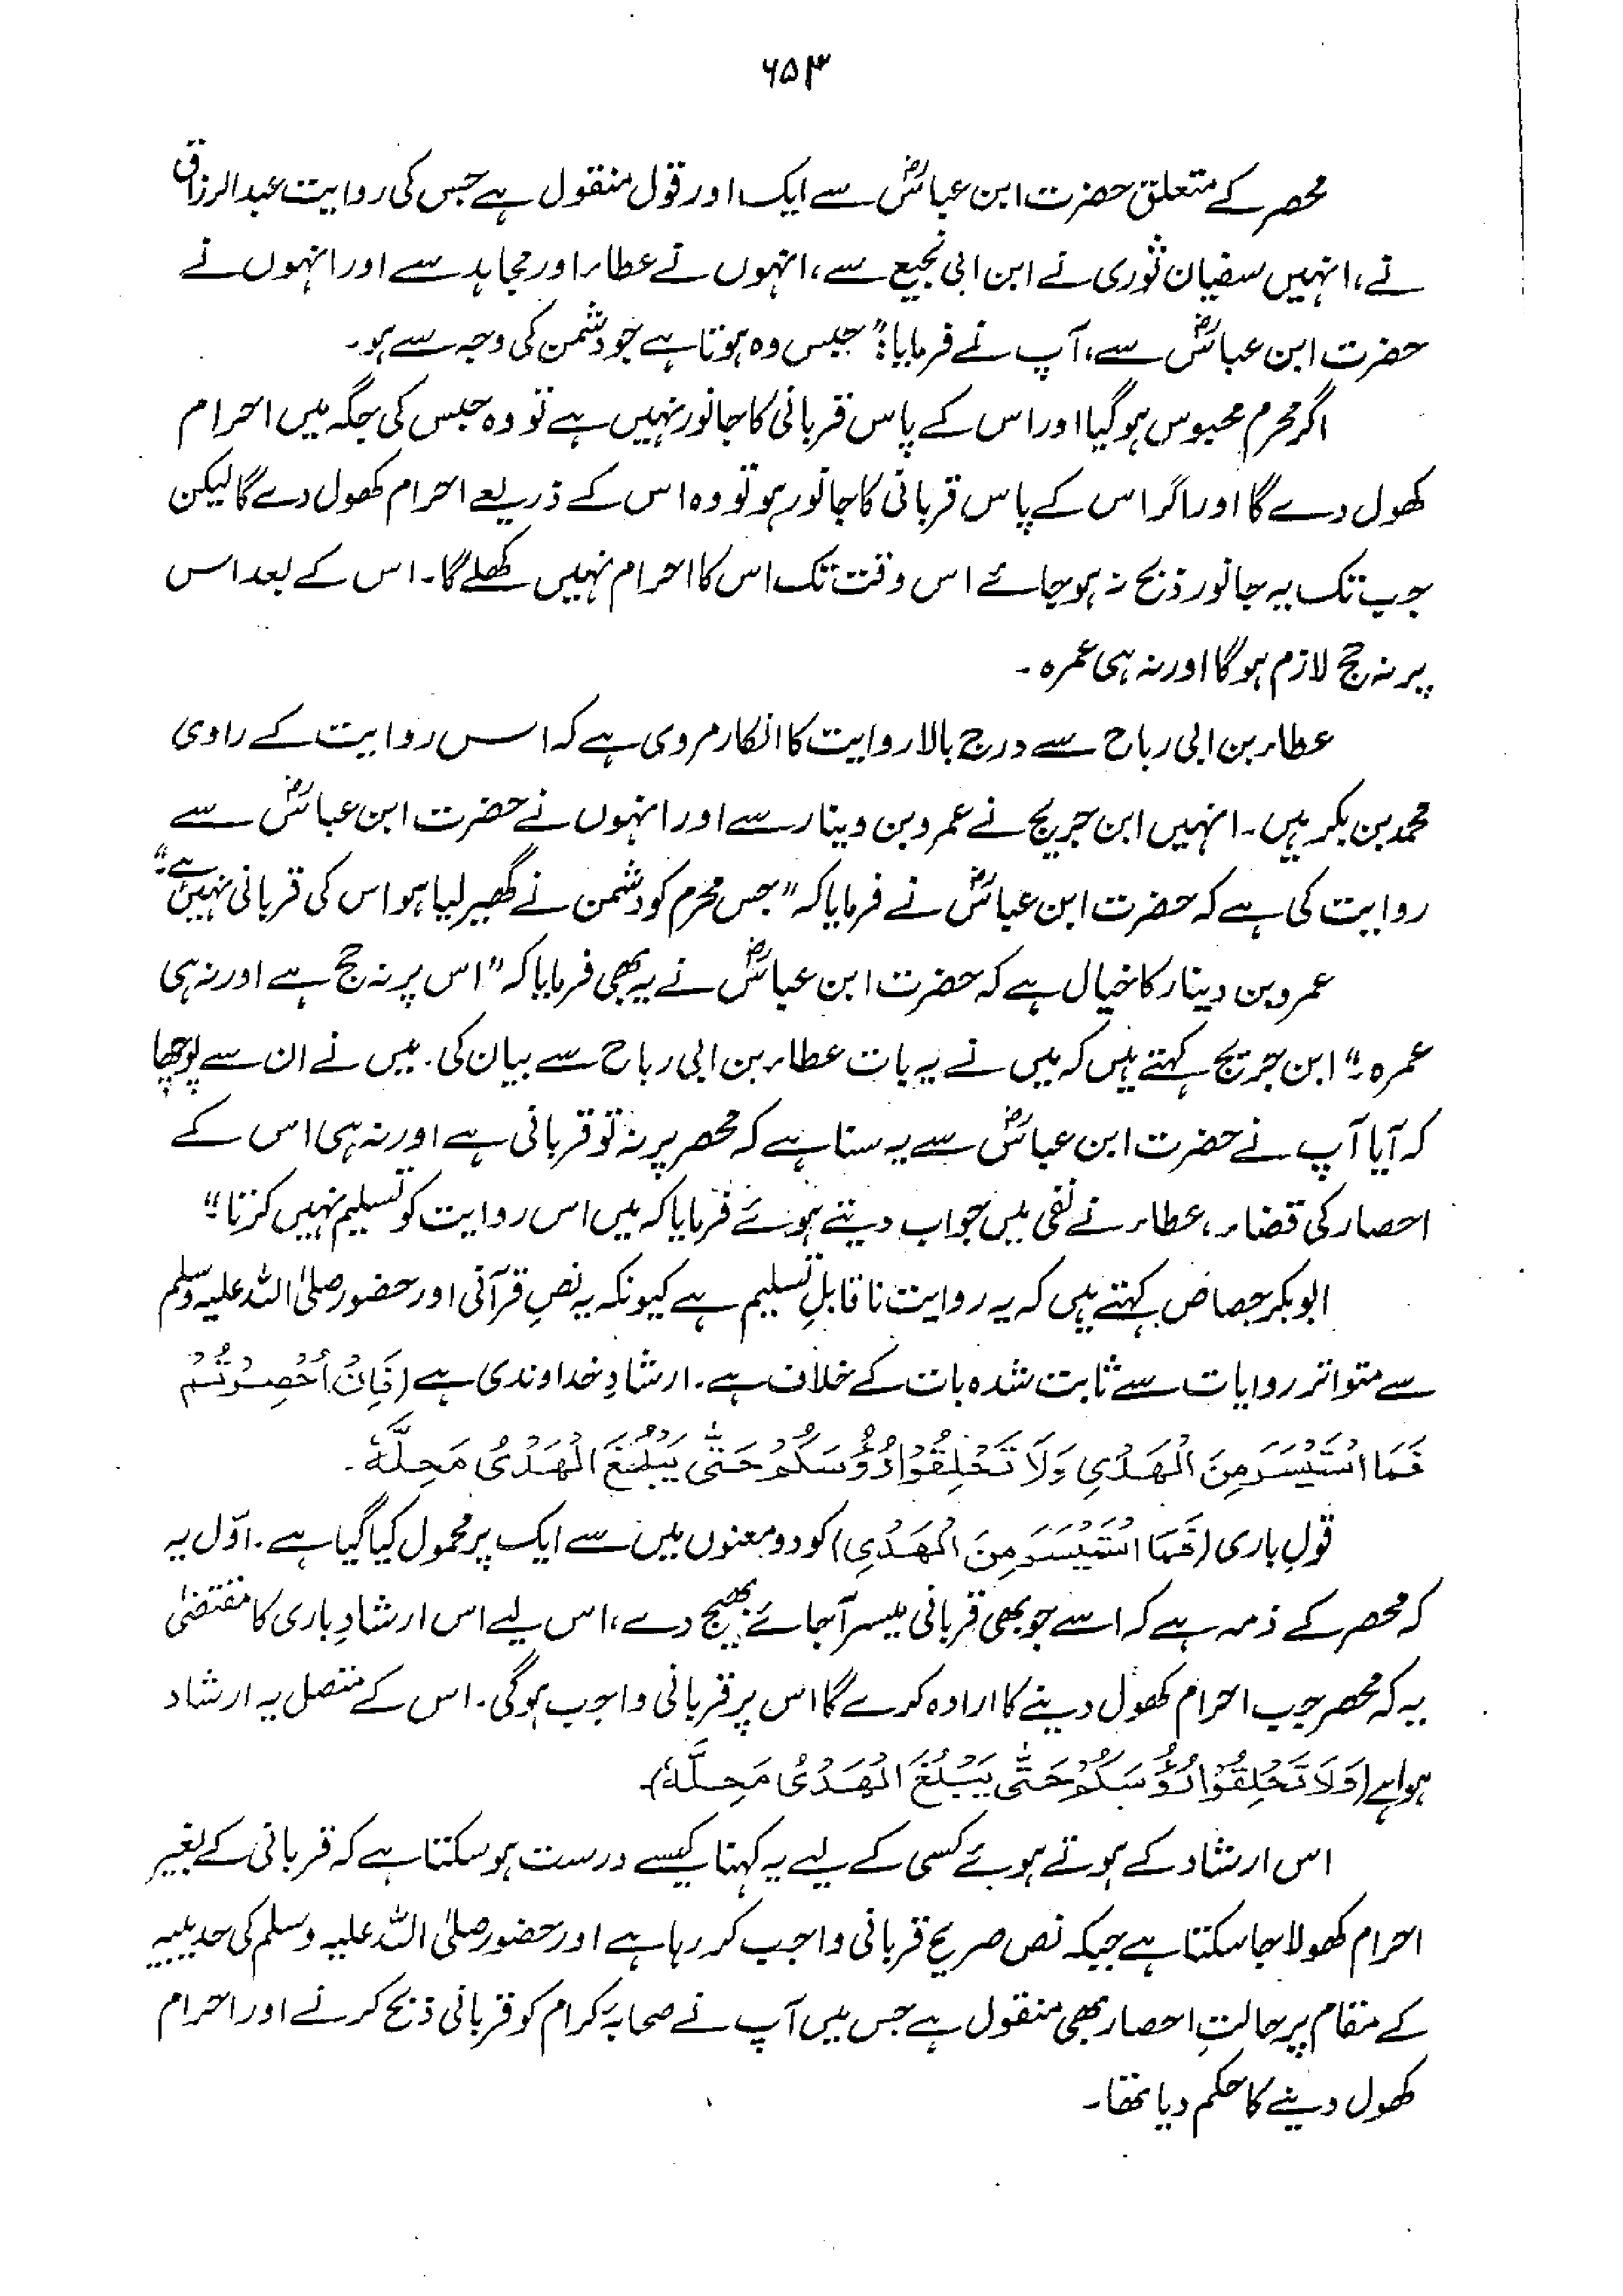 ۶۵۳
محصر کے متعلق حضرت ابن عباسؓ سے ایک اور قول منقول ہے جس کی روایت عبدالرزاق
نے، انہیں سفیان ثوری نے ابن ابی نجیع سے، انہوں نے عطاء اور مجاہد سے اور انہوں نے
حضرت ابن عباسؓ سے، آپ نے فرمایا: "حبس وہ ہوتا ہے جو دشمن کی وجہ سے ہو۔
اگر محرم محبوس ہوگیا اور اس کے پاس قربانی کا جانور نہیں ہے تو وہ حبس کی جگہ میں احرام
کھول دے گا اور اگر اس کے پاس قربانی کا جانور ہو تو وہ اس کے ذریعے احرام کھول دے گا لیکن
جب تک یہ جانور ذبح نہ ہوجائے اس وقت تک اس کا احرام نہیں کھلے گا۔ اس کے بعد اس
پر نہ حج لازم ہوگا اور نہ ہی عمرہ۔
عطاء بن ابی رباح سے درج بالا روایت کا انکار مروی ہے کہ اس روایت کے راوی
محمد بن بکر ہیں۔ انہیں ابن جریج نے عمرو بن دینار سے اور انہوں نے حضرت ابن عباسؓ سے
روایت کی ہے کہ حضرت ابن عباسؓ نے فرمایا کہ "جس محرم کو دشمن نے گھیر لیا ہو اس کی قربانی نہیں ہے"
عمرو بن دینار کا خیال ہے کہ حضرت ابن عباسؓ نے یہ بھی فرمایا کہ "اس پر نہ حج ہے اور نہ ہی
عمرہ"۔ ابن جریج کہتے ہیں کہ میں نے یہ بات عطاء بن ابی رباح سے بیان کی۔ میں نے ان سے پوچھا
کہ آیا آپ نے حضرت ابن عباسؓ سے یہ سنا ہے کہ محصر پر نہ تو قربانی ہے اور نہ ہی اس کے
احصار کی قضاء، عطاء نے نفی میں جواب دیتے ہوئے فرمایا کہ میں اس روایت کو تسلیم نہیں کرتا"
ابوبکر جصاص کہتے ہیں کہ یہ روایت ناقابلِ تسلیم ہے کیونکہ یہ نصِ قرآنی اور حضور صلی اللہ علیہ وسلم
سے متواتر روایات سے ثابت شدہ بات کے خلاف ہے۔ ارشادِ خداوندی ہے (فَاِنْ اُحْصِرْتُمْ
فَمَا اسْتَيْسَرَ مِنَ الْهَدْيِ وَلَا تَحْلِقُوْا رُؤُسَكُمْ حَتّٰى يَبْلُغَ الْهَدْيُ مَحِلَّهٗ۔
قولِ باری (فَمَا اسْتَيْسَرَ مِنَ الْهَدْيِ) کو دو معنوں میں سے ایک پر محمول کیا گیا ہے۔ اوّل یہ
کہ محصر کے ذمہ ہے کہ اسے جو بھی قربانی میسر آجائے بھیج دے، اس لیے اس ارشادِ باری کا مقتضیٰ
یہ کہ محصر جب احرام کھول دینے کا ارادہ کرے گا اس پر قربانی واجب ہوگی۔ اس کے متصل یہ ارشاد
ہوا ہے (وَلَا تَحْلِقُوْا رُؤُسَكُمْ حَتّٰى يَبْلُغَ الْهَدْيُ مَحِلَّهٗ)۔
اس ارشاد کے ہوتے ہوئے کسی کے لیے یہ کہنا کیسے درست ہوسکتا ہے کہ قربانی کے بغیر
احرام کھولا جاسکتا ہے جبکہ نص صریح قربانی واجب کر رہا ہے اور حضور صلی اللہ علیہ وسلم کی حدیبیہ
کے مقام پر حالتِ احصار بھی منقول ہے جس میں آپ نے صحابہ کرام کو قربانی ذبح کرنے اور احرام
کھول دینے کا حکم دیا تھا۔